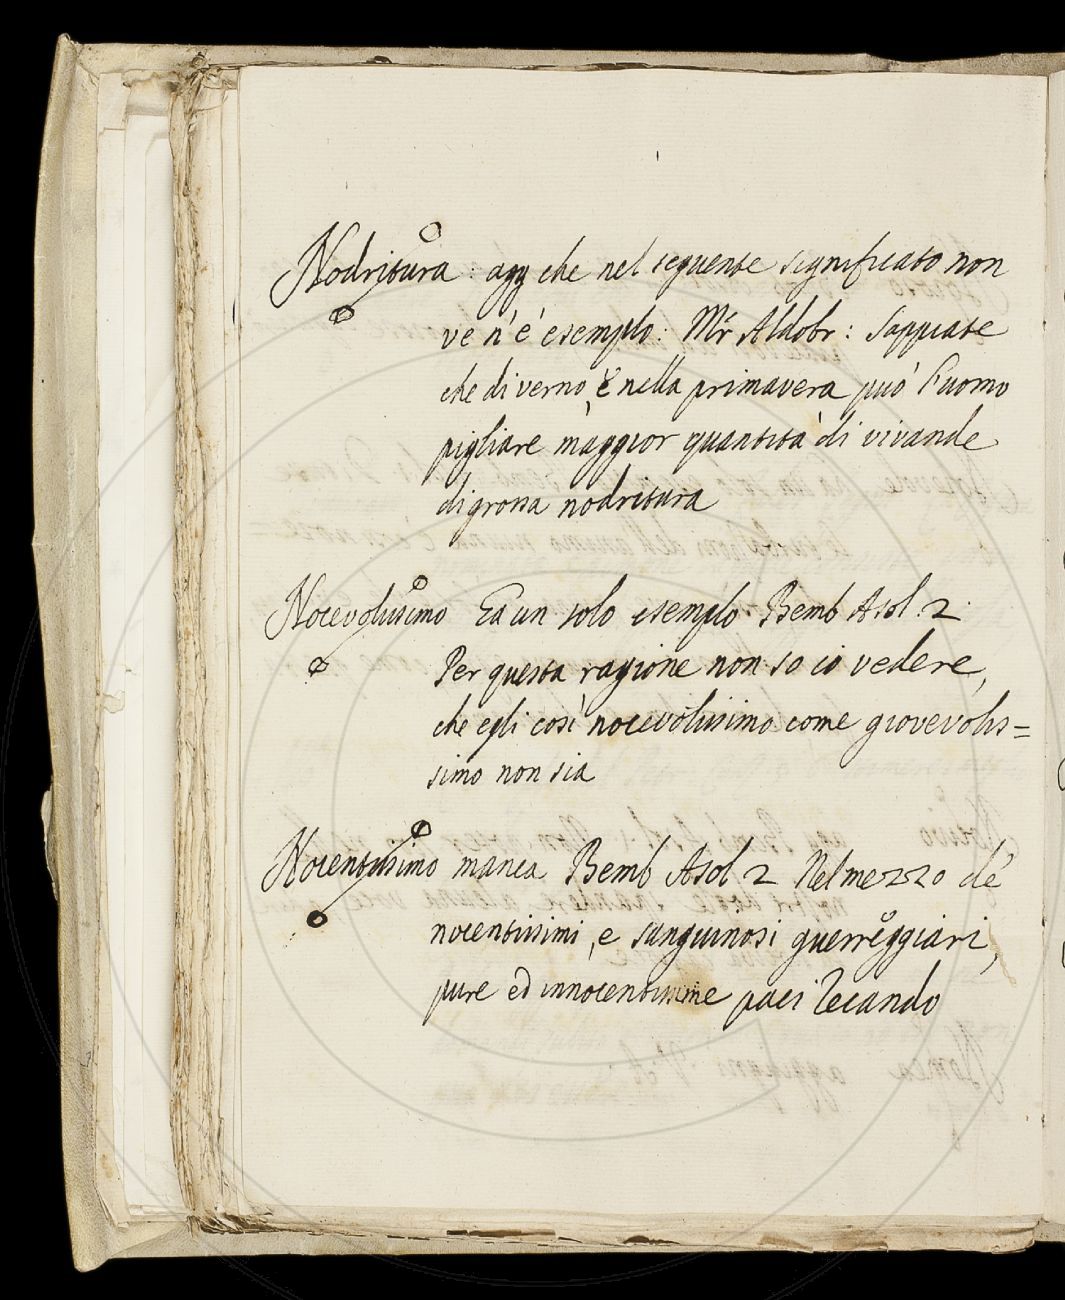 Nodritura : agg che nel seguente significato non
ve n'è esempio: Mr Aldobr: Sappiate
che di verno, e nella primavera può l'uomo
pigliare maggior quantità di vivande
di grossa nodritura
Nocevolissimo Ea un solo esemplo. Bemb Asol. 2
Per questa ragione non so io vedere,
che egli così nocevolissimo come giovevolis=
simo non sia
Nocentissimo manca Bemb Asol 2 Nel mezzo de'
nocentissimi, e sanguinosi guerreggiari,
pure ed innocentissime paci recando